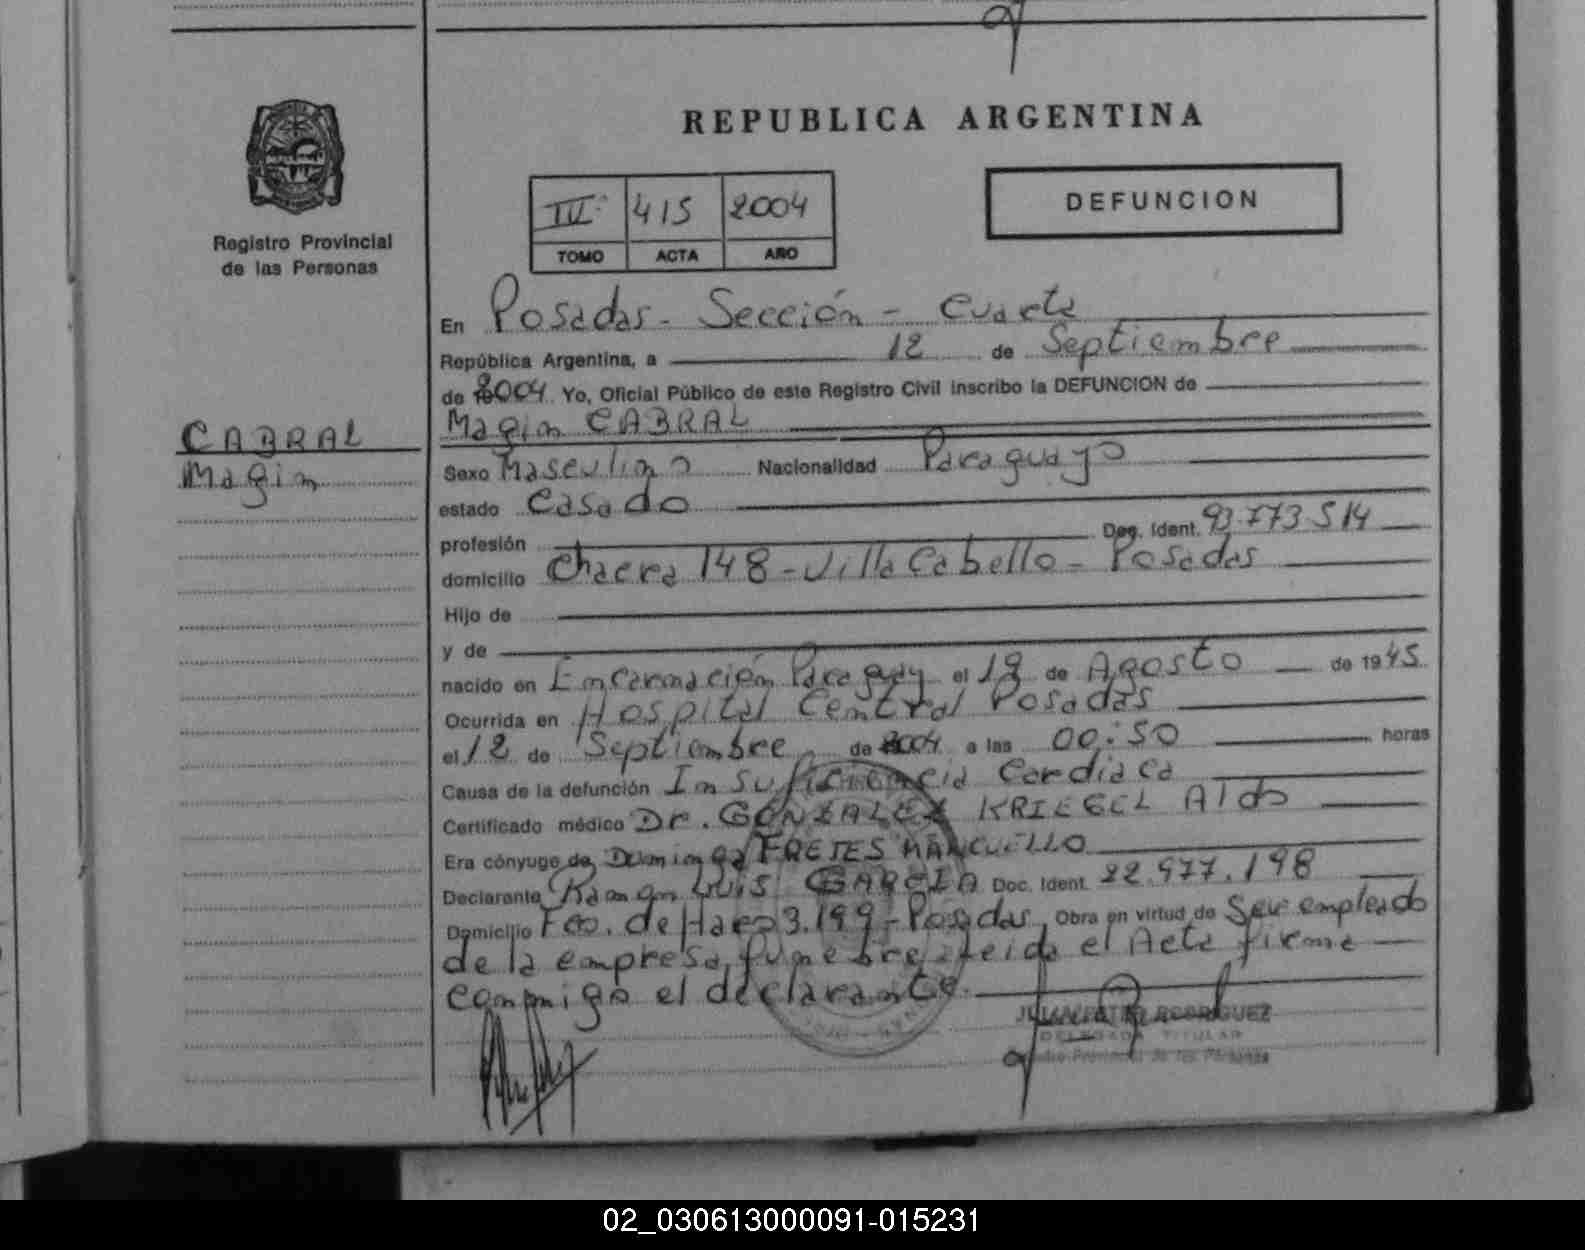 REPUBLICA ARGENTINA
Registro Provincial
de las Personas
III 415 2004
TOMO ACTA AÑO
DEFUNCION
En Posadas - Sección - Cuarta
República Argentina, a 12 de Septiembre
de 2004 Yo, Oficial Público de este Registro Civil inscribo la DEFUNCION de
Magin CABRAL
CABRAL
Magin
Sexo Masculino Nacionalidad Paraguayo
estado Casado
profesión Doc. Ident. 93.773.514
domicilio Chacra 148 - Villa Cabello - Posadas
Hijo de
y de
nacido en Encarnación Paraguay el 19 de Agosto de 1945
Ocurrida en Hospital Central Posadas
el 12 de Septiembre de 2004 a las 00:50 horas
Causa de la defunción Insuficiencia Cardiaca
Certificado médico Dr. GONZALEZ KRIEGEL Aldo
Era cónyuge de Dominga FRETES MANCUELLO
Declarante Ramon Luis GARCIA Doc. Ident. 22.977.198
Domicilio Fco. de Haro 3.199 - Posadas Obra en virtud de Ser empleado
de la empresa funebre Leida el Acta firma
conmigo el declarante.
RODRIGUEZ
DELEGADA TITULAR
02_030613000091-015231